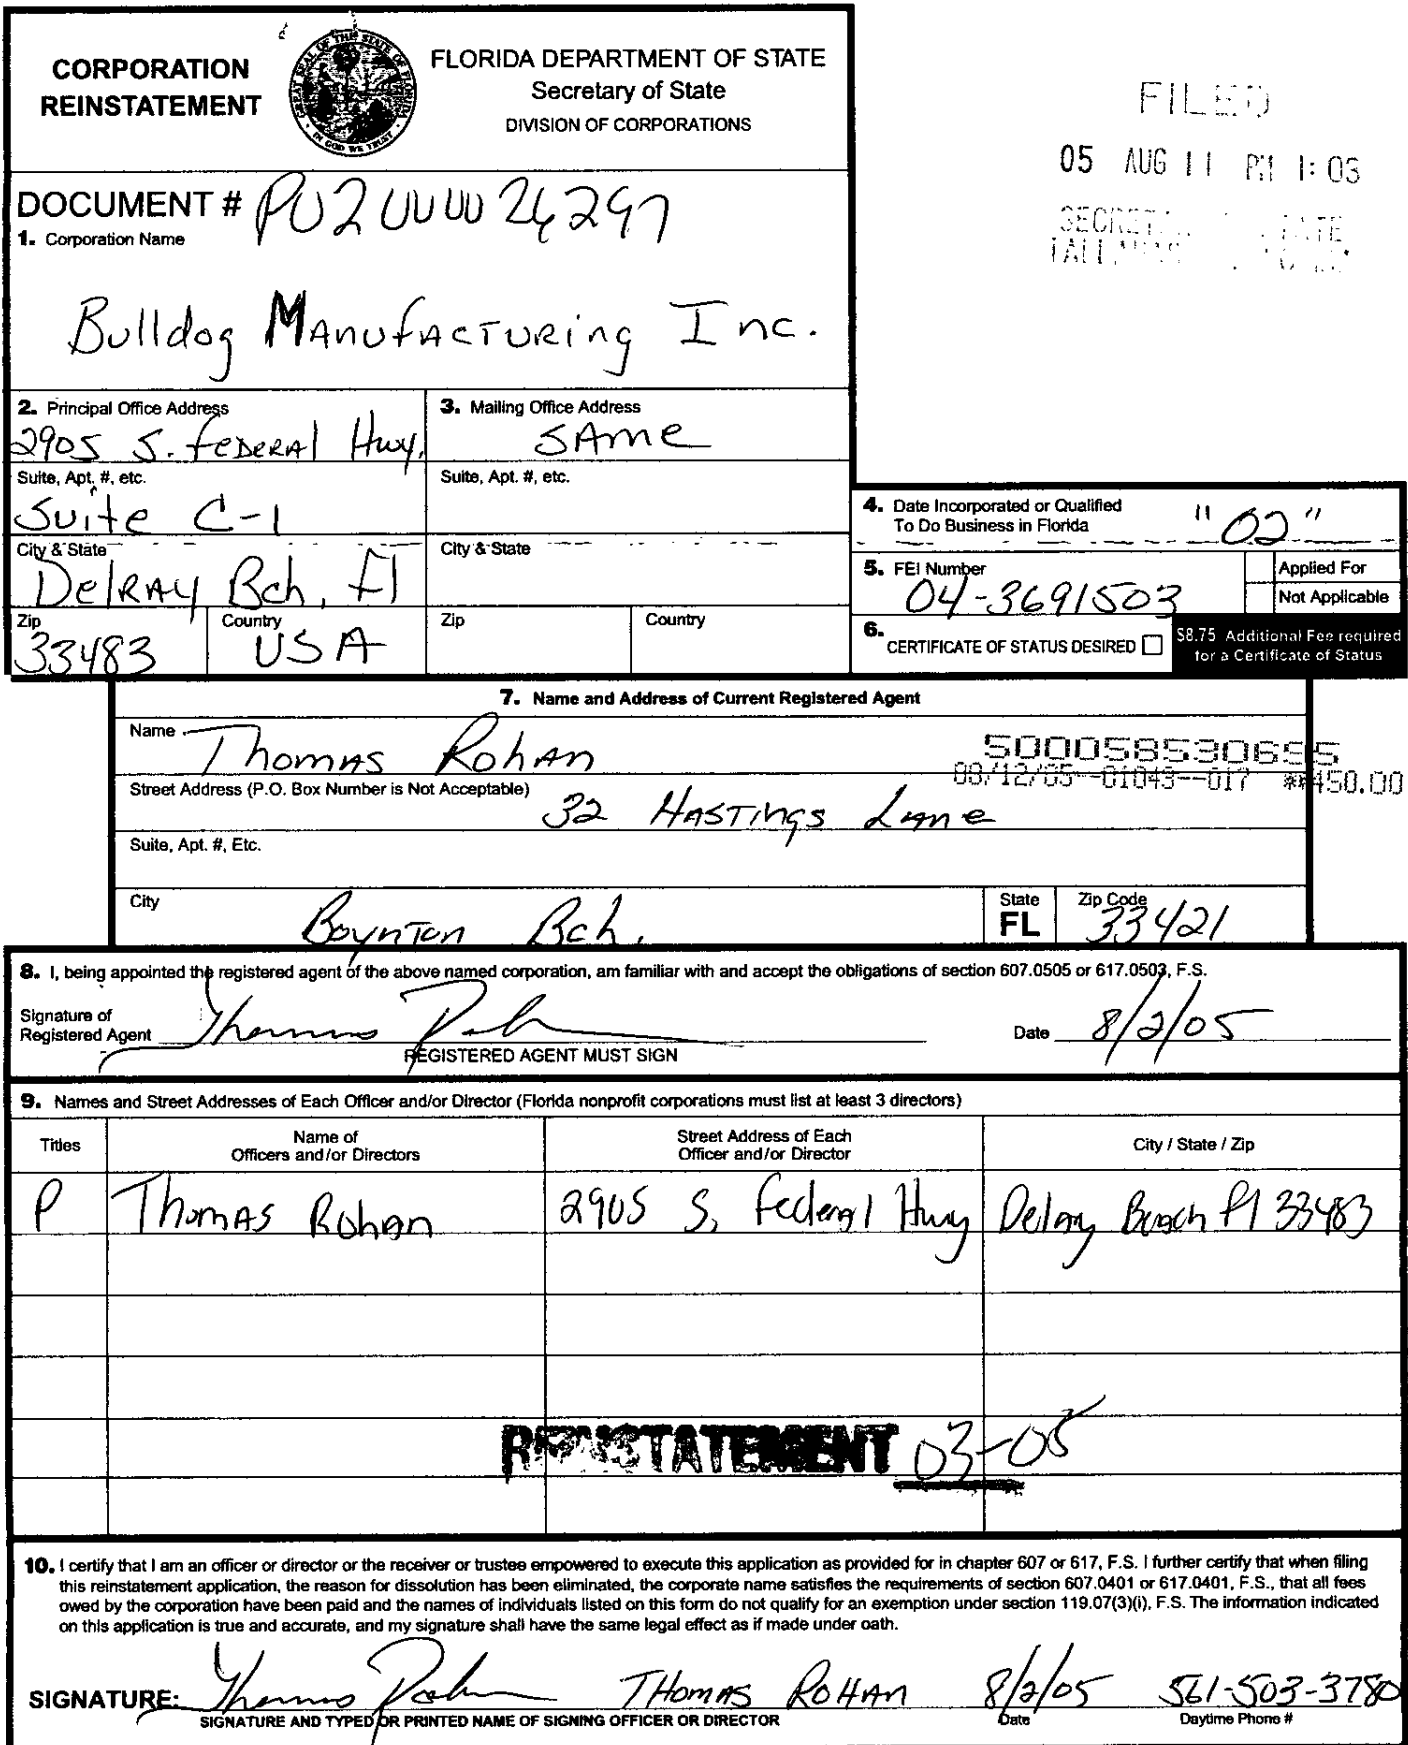 CORPORATION
REINSTATEMENT
GREAT SEAL OF THE STATE OF FLORIDA
IN GOD WE TRUST
FLORIDA DEPARTMENT OF STATE
Secretary of State
DIVISION OF CORPORATIONS
FILED
05 AUG 11 PM 1:03
DOCUMENT # P02000026297
1. Corporation Name
Bulldog Manufacturing Inc.
2. Principal Office Address
2905 S. Federal Hwy.
Suite, Apt. #, etc.
Suite C-1
City & State
Delray Bch, Fl
Zip
33483
Country
USA
3. Mailing Office Address
SAme
Suite, Apt. #, etc.
City & State
Zip
Country
4. Date Incorporated or Qualified
To Do Business in Florida
"02"
5. FEI Number
04-3691503
Applied For
Not Applicable
6. CERTIFICATE OF STATUS DESIRED
$8.75 Additional Fee required
for a Certificate of Status
7. Name and Address of Current Registered Agent
Name Thomas Rohan
500058530695
08/12/05--01043--017 **450.00
Street Address (P.O. Box Number is Not Acceptable)
32 Hastings Lane
Suite, Apt. #, Etc.
City
Boynton Bch.
State
FL
Zip Code
33421
8. I, being appointed the registered agent of the above named corporation, am familiar with and accept the obligations of section 607.0505 or 617.0503, F.S.
Signature of
Registered Agent Thomas Rohan
REGISTERED AGENT MUST SIGN
Date 8/2/05
9. Names and Street Addresses of Each Officer and/or Director (Florida nonprofit corporations must list at least 3 directors)
Titles
Name of
Officers and/or Directors
Street Address of Each
Officer and/or Director
City / State / Zip
P Thomas Rohan 2905 S. Federal Hwy Delray Beach Fl 33483
REINSTATEMENT 03-05
10. I certify that I am an officer or director or the receiver or trustee empowered to execute this application as provided for in chapter 607 or 617, F.S. I further certify that when filing
this reinstatement application, the reason for dissolution has been eliminated, the corporate name satisfies the requirements of section 607.0401 or 617.0401, F.S., that all fees
owed by the corporation have been paid and the names of individuals listed on this form do not qualify for an exemption under section 119.07(3)(i), F.S. The information indicated
on this application is true and accurate, and my signature shall have the same legal effect as if made under oath.
SIGNATURE: Thomas Rohan THOMAS ROHAN 8/2/05 561-503-3780
SIGNATURE AND TYPED OR PRINTED NAME OF SIGNING OFFICER OR DIRECTOR
Date
Daytime Phone #